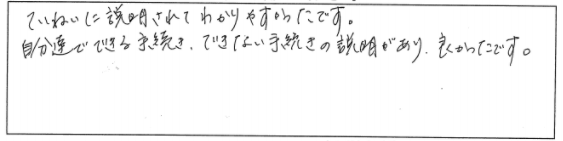 ていねいに説明されてわかりやすかったです。
自分達でできる手続き、できない手続きの説明があり、良かったです。